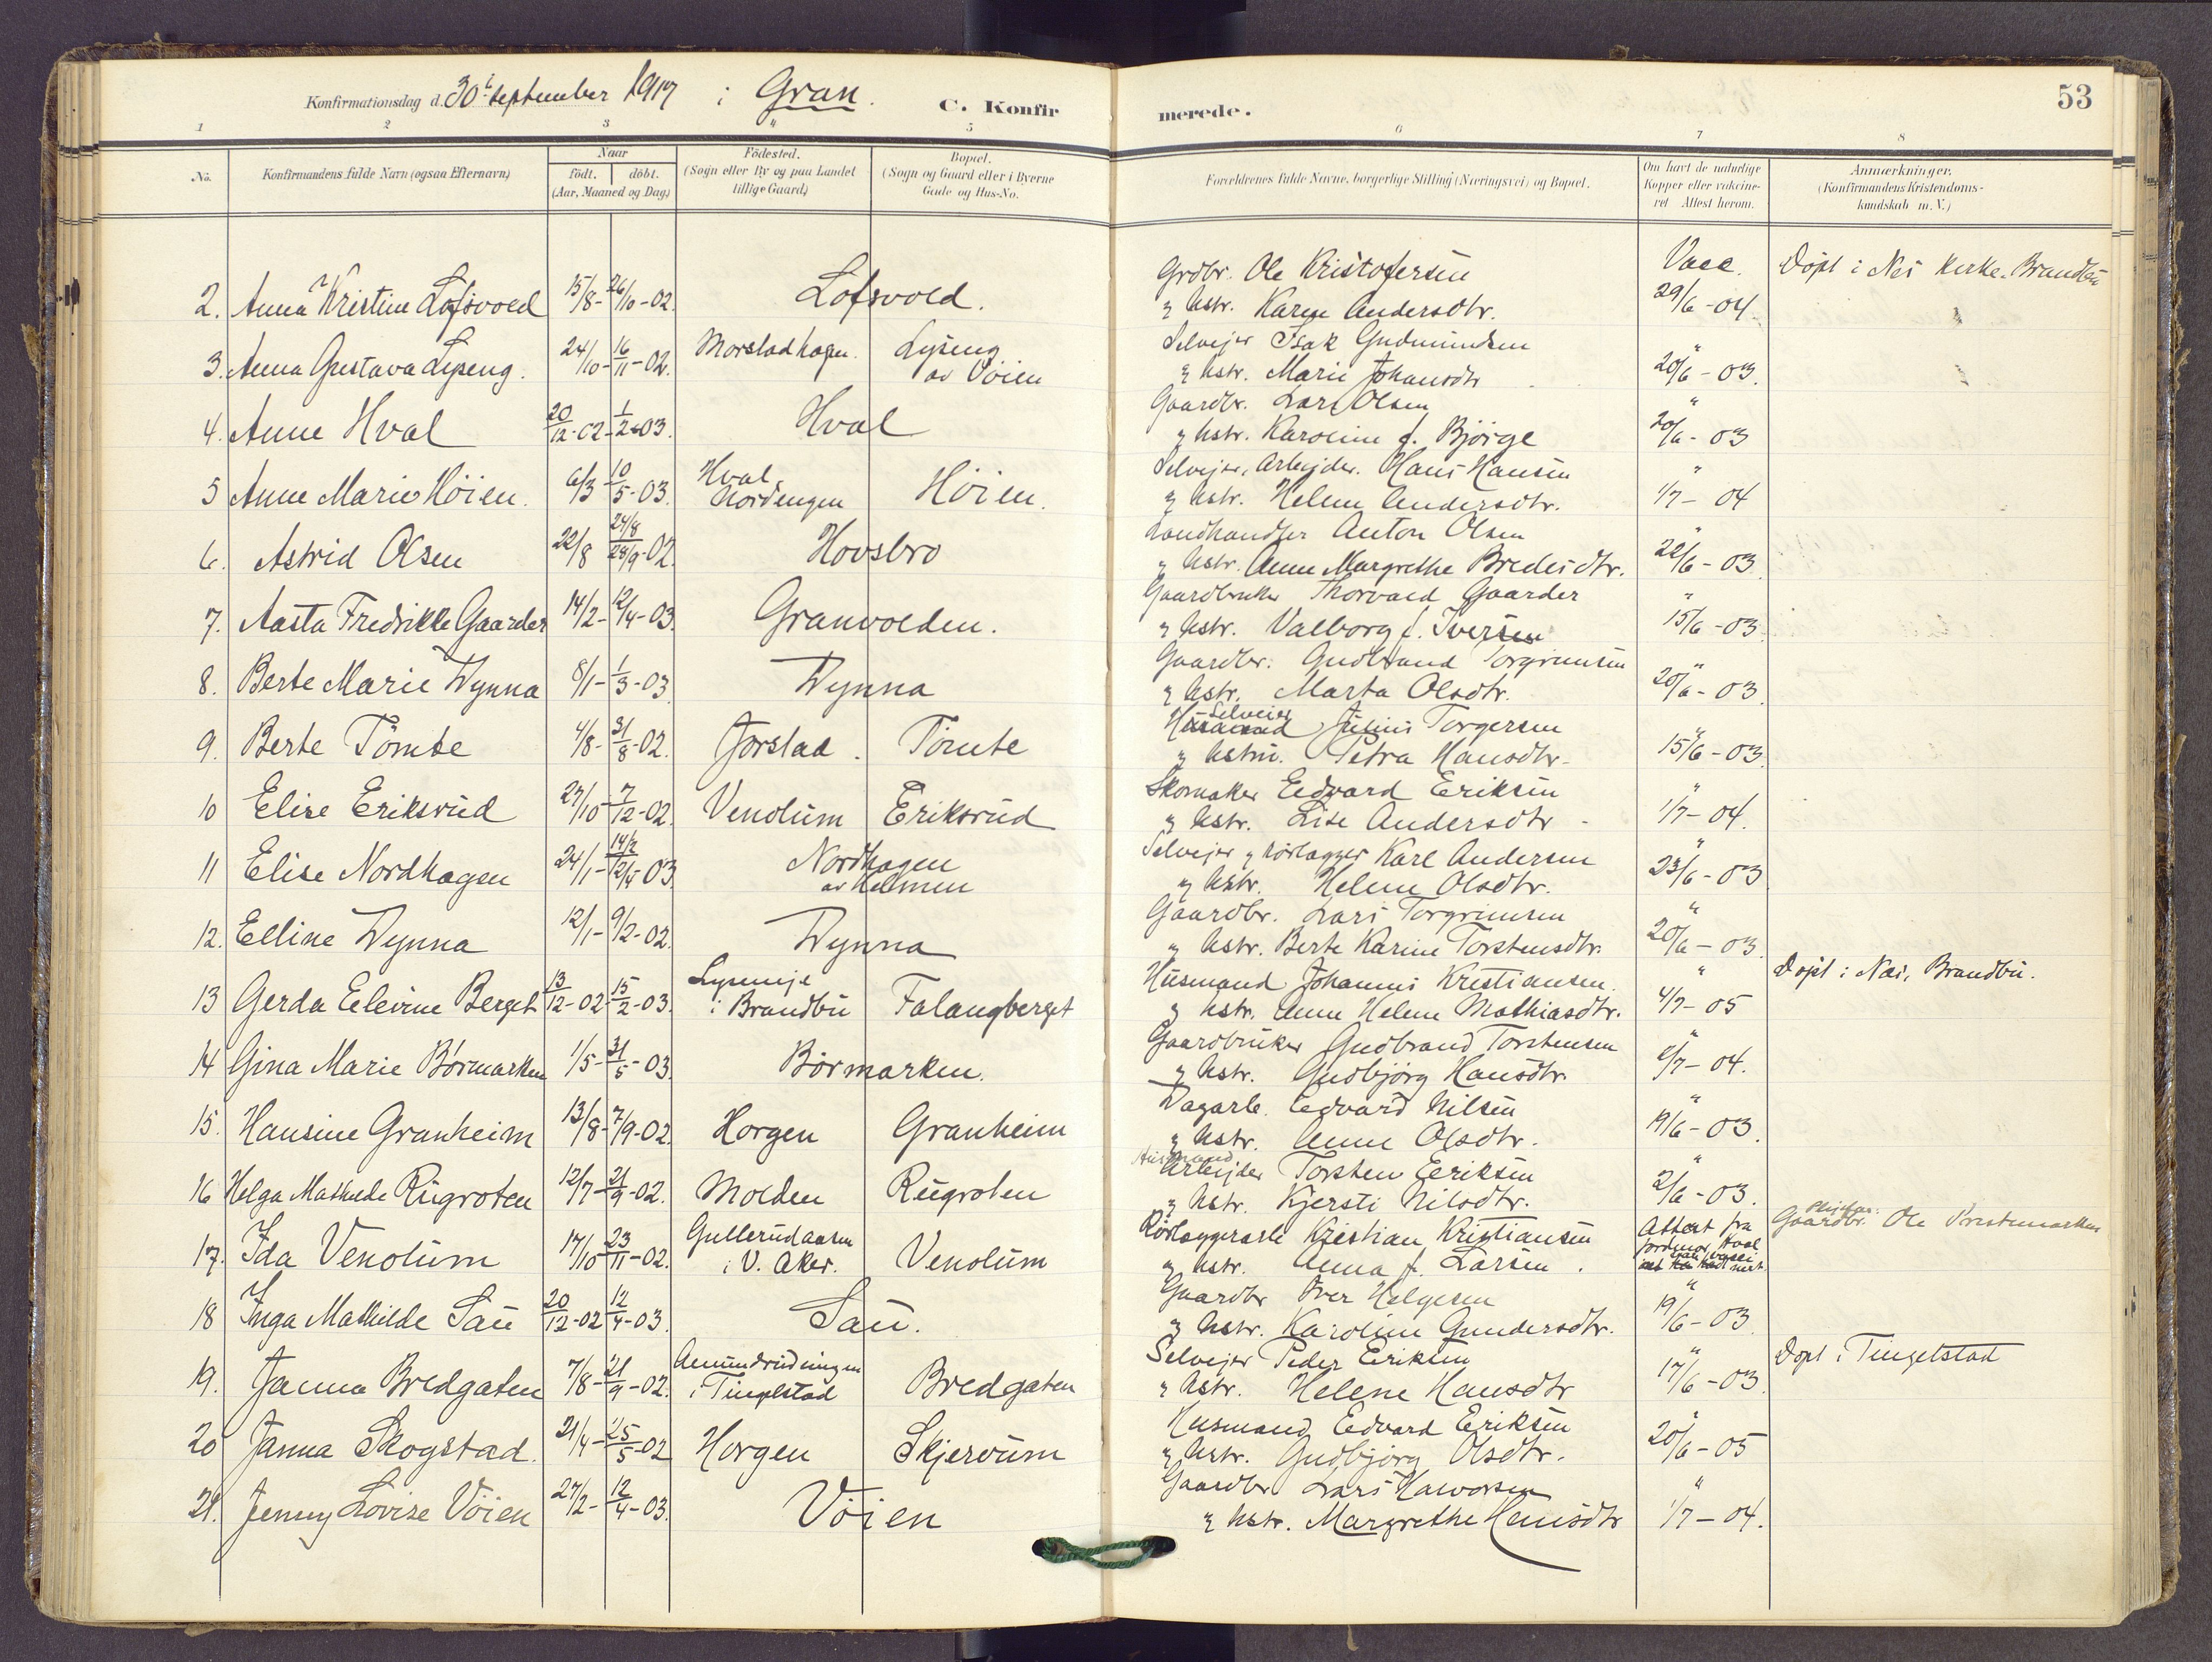 Konfirmationsdag d. 30t september 1917 i Gran.
C. Konfirmerede.
53
1 2 3 4 5 6 7 8
No.
Konfirmandens fulde Navn (ogsaa Efternavn)
Naar
födt. döbt.
(Aar, Maaned og Dag)
Födested.
(Sogn eller By og paa Landet
tillige Gaard)
Bopæl.
(Sogn og Gaard eller i Byerne
Gade og Hus-No.
Forældrenes fulde Navne, borgerlige Stilling (Næringsvei) og Bopæl.
Om havt de naturlige
Kopper eller vakcine-
ret Attest herom.
Anmærkninger.
(Konfirmandens Kristendoms-
kundskab m.V.)
2. Anna Kristine Lofsvold 15/8- 26/10-02. Lofsvold.
Grdbr. Ole Kristofersen Vacc. Döpt i Nes kirke. Brandbu
& hstr. Karen Andersdtr. 29/6-04
3. Anna Gustava Lyseng. 24/10- 16/11-02. Morstadhagen. Lyseng
av Vöien
Selvejer Isak Gudmundsen "
& hstr. Marie Johansdtr 20/6-03.
4. Anne Hval 20/12-02- 1/2-03. Hval
Gaardbr. Lars Olsen "
& hstr. Karoline f. Bjørge 20/6-03
5 Anne Marie Höien. 6/3- 10/5-03. Hval, Nordengen Höien.
Selvejer, Arbejder. Hans Hansen "
& hstr. Helene Andersdtr. 1/7-04
6. Astrid Olsen 22/8 24/8 28/9-02. Hovsbro
Landhandler Anton Olsen "
& hstr. Anne Margrethe Bredesdtr. 22/6-03
7. Aasta Fredrikke Gaarder 14/2- 12/4-03. Granvolden.
Gaardbruker Thorvald Gaarder "
& hstr. Valborg f. Iversen 15/6-03
8. Berte Marie Dynna 8/1- 1/3-03 Dynna
Gaardbr. Gudbrand Torgrimsen "
& hstr. Marta Olsdtr. 20/6-03
9. Berte Tömte 4/8- 31/8-02. Jorstad. Tömte
Selveier
Husmand Julius Torgersen "
& hstru. Petra Hansdtr. 15/6-03
10 Elise Eriksrud 27/10- 7/12-02. Venolum Eriksrud
Skomaker Edvard Eriksen "
& hstr. Lise Andersdtr 1/7-04.
11 Elise Nordhagen 24/1- 14/2 12/4-03 Nordhagen
av Helmen
Selvejer & rörlægger Karl Andersen "
& hstr. Helene Olsdtr. 23/6-03
12. Elline Dynna 12/1- 9/2-02. Dynna
Gaardbr. Lars Torgrimsen "
& hstr. Berte Karine Torstensdtr. 20/6-03
13 Gerda Elevine Berget 13/12-02- 15/2-03. i Brandbu Falangberget
Husmand Johannes Kristiansen. " Döpt i Næs, Brandbu.
& hstr. Anne Helene Mathiasdtr. 4/7-05
14 Gina Marie Börmarken 1/5- 31/5-03 Börmarken.
Gaardbruker Gudbrand Torstensen "
& hstr. Gudbjörg Hansdtr. 1/7-04.
15. Hansine Granheim 13/8- 7/9-02 Horgen Granheim
Dagarb. Edvard Nilsen "
& hstr. Anne Olsdtr. 19/6-03.
16 Helga Mathilde Rugroten 12/7- 21/9-02. Molden Rugroten
Husmand
Arbejder Torsten Eriksen "
& hstr. Kjersti Nilsdtr. 2/6-03.
17. Ida Venolum 17/10- 23/11-02. Gullerudaasen
i V. Aker. Venolum
Rörlæggerarb Kristian Kristiansen Attest fra
Gaardbr. Ole
& hstr. Anna f. Larsen. jordmor Hval
18 Inga Mathilde Sau 20/12-02 12/4-03. Sau.
Gaardbr Iver Helgesen "
& hstr. Karoline Gundersdtr. 19/6-03
19. Janna Bredgaten 7/8- 21/9-02. Amundrudeningen
i Tingelstad Bredgaten
Selvejer Peder Eriksen " Döpt i Tingelstad
& hstr. Helene Hansdtr 17/6-03.
20 Janna Skogstad. 21/4- 25/5-02 Horgen Skjervum
Husmand Edvard Eriksen "
& hstr. Gudbjörg Olsdtr. 20/6-05
21. Jenny Lovise Vöien 27/2- 12/4-03. Vöien
Gaardbr Lars Halvorsen "
& hstr. Margrethe Hansdtr 1/7-04.